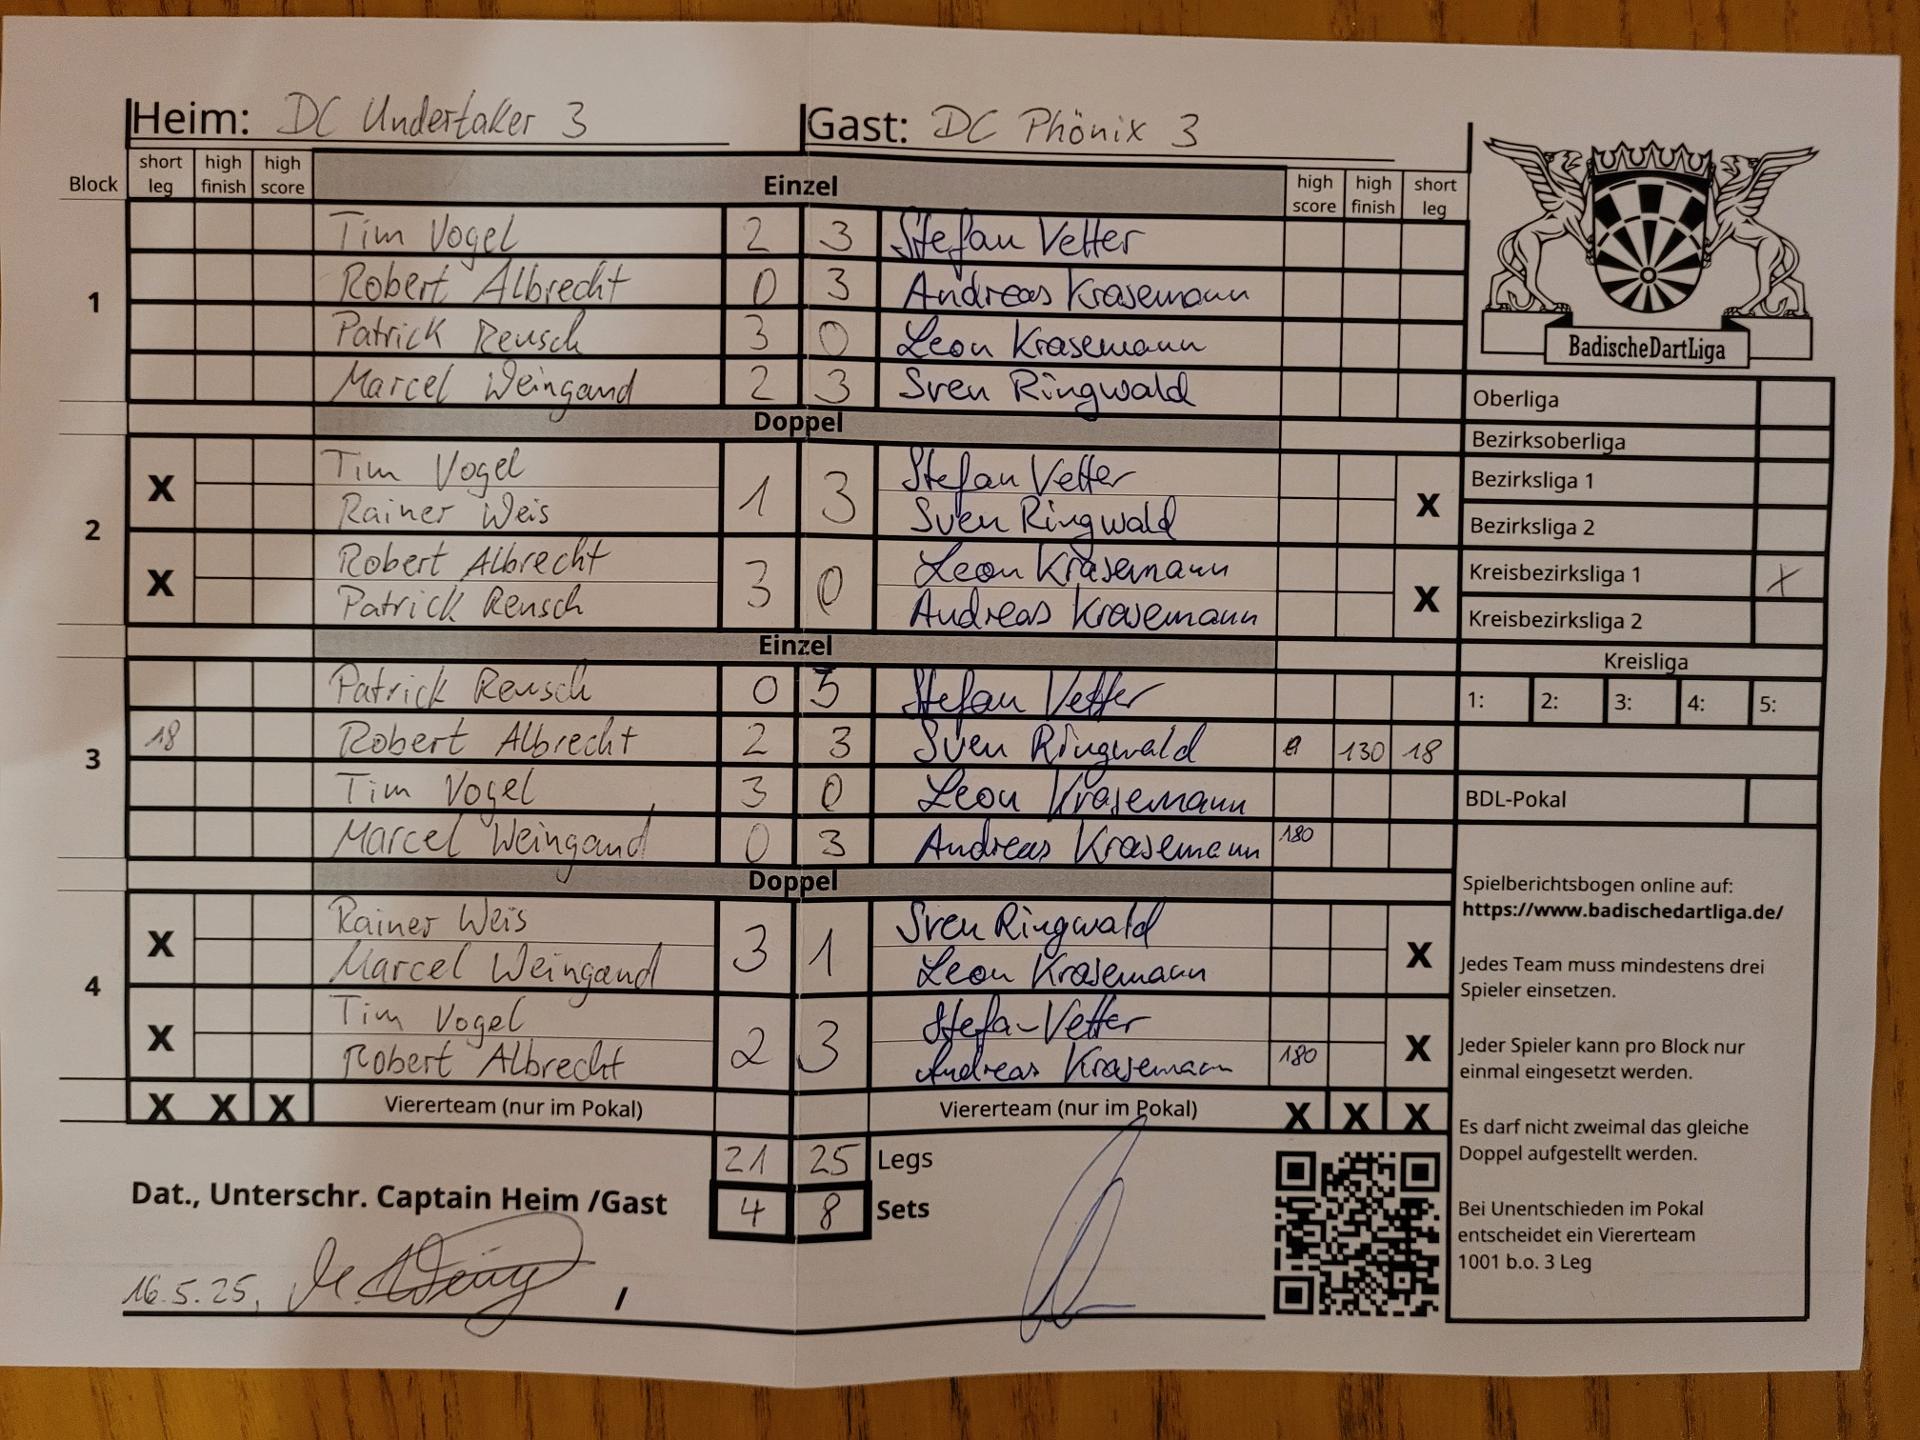 Heim: DC Undertaker 3 Gast: DC Phönix 3
Block short leg high finish high score Einzel high score high finish short leg
1
Tim Vogel 2 3 Stefan Vetter
Robert Albrecht 0 3 Andreas Krasemann
Patrick Rensch 3 0 Leon Krasemann
Marcel Weingand 2 3 Sven Ringwald
Doppel
2
X Tim Vogel 1 3 Stefan Vetter X
Rainer Weis Sven Ringwald
X Robert Albrecht 3 0 Leon Krasemann X
Patrick Rensch Andreas Krasemann
Einzel
3
Patrick Rensch 0 3 Stefan Vetter
18 Robert Albrecht 2 3 Sven Ringwald 130 18
Tim Vogel 3 0 Leon Krasemann
Marcel Weingand 0 3 Andreas Krasemann 180
Doppel
4
X Rainer Weis 3 1 Sven Ringwald X
Marcel Weingand Leon Krasemann
X Tim Vogel 2 3 Stefan Vetter X
Robert Albrecht Andreas Krasemann 180
X X X Viererteam (nur im Pokal) Viererteam (nur im Pokal) X X X
21 25 Legs
4 8 Sets
Dat., Unterschr. Captain Heim /Gast
16.5.25, /
BadischeDartLiga
Oberliga
Bezirksoberliga
Bezirksliga 1
Bezirksliga 2
Kreisbezirksliga 1 X
Kreisbezirksliga 2
Kreisliga
1: 2: 3: 4: 5:
BDL-Pokal
Spielberichtsbogen online auf:
https://www.badischedartliga.de/
Jedes Team muss mindestens drei
Spieler einsetzen.
Jeder Spieler kann pro Block nur
einmal eingesetzt werden.
Es darf nicht zweimal das gleiche
Doppel aufgestellt werden.
Bei Unentschieden im Pokal
entscheidet ein Viererteam
1001 b.o. 3 Leg